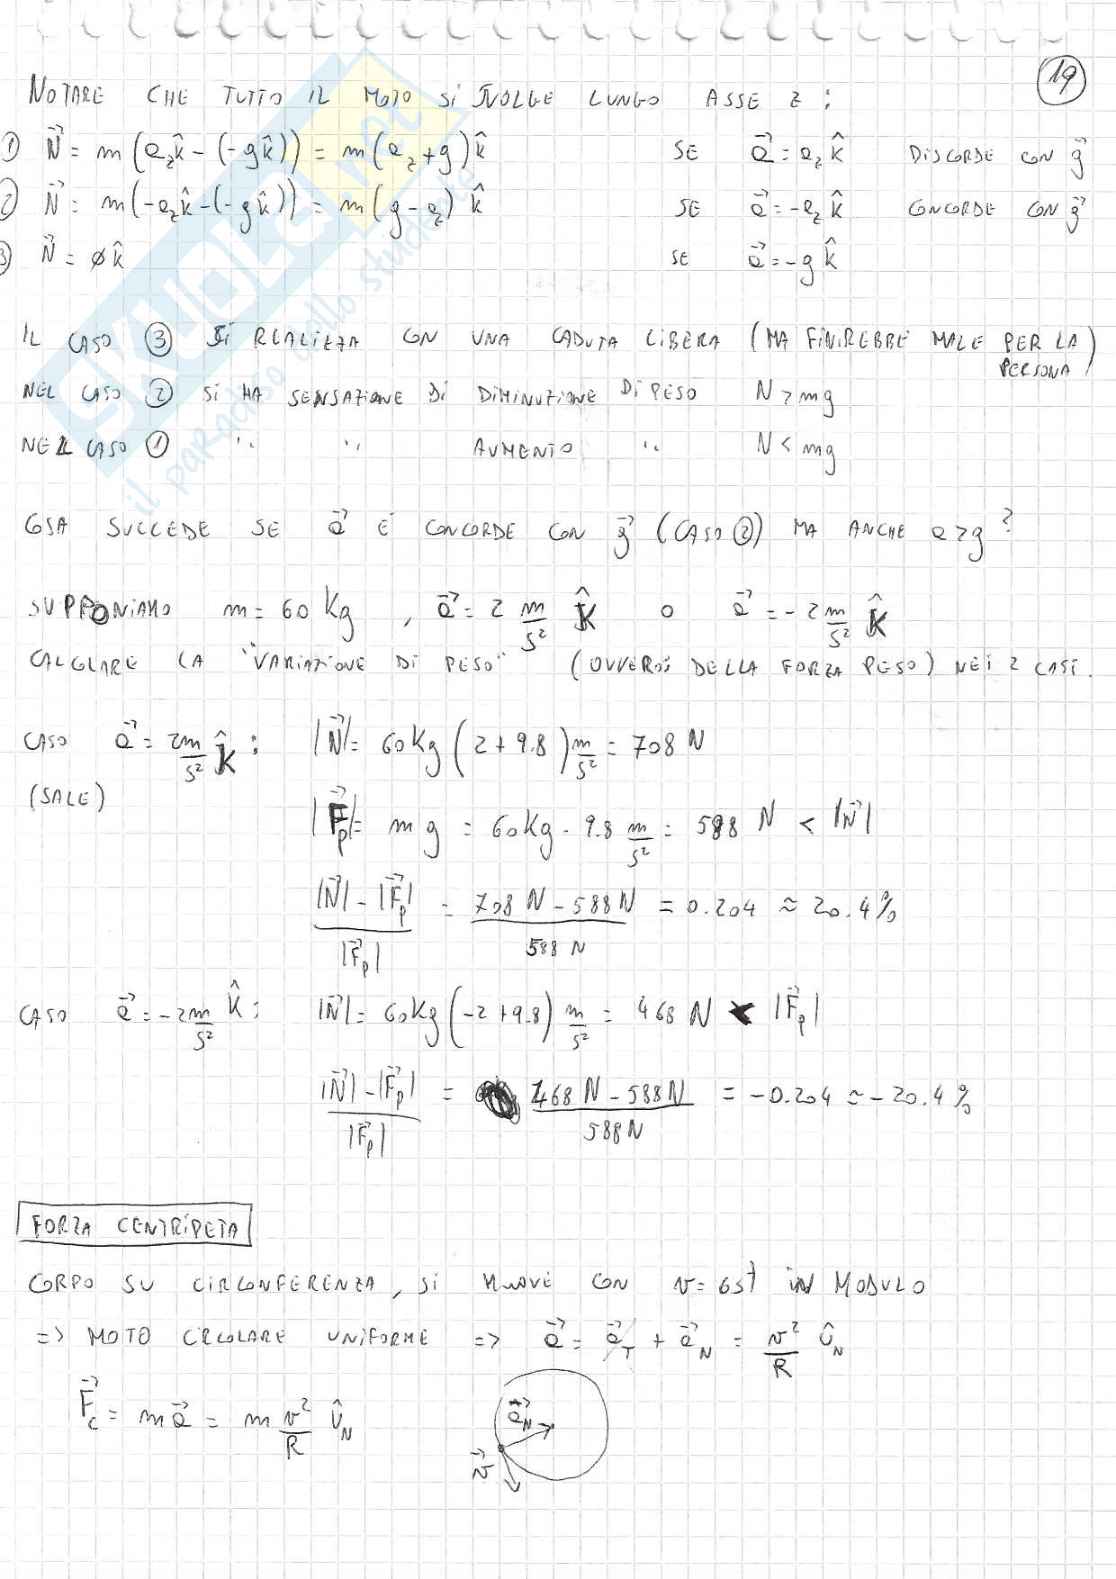 19
NOTARE CHE TUTTO IL MOTO SI SVOLGE LUNGO ASSE z :
① N⃗ = m (a_z k̂ - (-g k̂)) = m (a_z + g) k̂ SE a⃗ = a_z k̂ DISCORDE CON g⃗
② N⃗ = m (-a_z k̂ - (-g k̂)) = m (g - a_z) k̂ SE a⃗ = -a_z k̂ CONCORDE CON g⃗
③ N⃗ = ø k̂ SE a⃗ = -g k̂
IL CASO ③ SI REALIZZA CON UNA CADUTA LIBERA (MA FINIREBBE MALE PER LA PERSONA)
NEL CASO ② SI HA SENSAZIONE DI DIMINUZIONE DI PESO N > mg
NEL CASO ① " " AUMENTO " N < mg
COSA SUCCEDE SE a⃗ E' CONCORDE CON g⃗ (CASO ②) MA ANCHE a > g ?
SUPPONIAMO m = 60 Kg , a⃗ = 2 m/s² k̂ O a⃗ = -2 m/s² k̂
CALCOLARE LA "VARIAZIONE DI PESO" (OVVEROS DELLA FORZA PESO) NEI 2 CASI.
CASO a⃗ = 2 m/s² k̂ : |N⃗| = 60 Kg (2 + 9.8) m/s² = 708 N
(SALE)
|F⃗p| = m g = 60 Kg · 9.8 m/s² = 588 N < |N⃗|
(|N⃗| - |F⃗p|) / |F⃗p| = (708 N - 588 N) / 588 N = 0.204 ≈ 20.4 %
CASO a⃗ = -2 m/s² k̂ : |N⃗| = 60 Kg (-2 + 9.8) m/s² = 468 N < |F⃗p|
(|N⃗| - |F⃗p|) / |F⃗p| = (468 N - 588 N) / 588 N = -0.204 ≃ -20.4 %
FORZA CENTRIPETA
CORPO SU CIRCONFERENZA, SI MUOVE CON v = cost IN MODULO
=> MOTO CIRCOLARE UNIFORME => a⃗ = a⃗_T + a⃗_N = v²/R û_N
F⃗c = m a⃗ = m v²/R û_N
a⃗_N
v⃗
SKUOLA.net
il paradiso dello studente